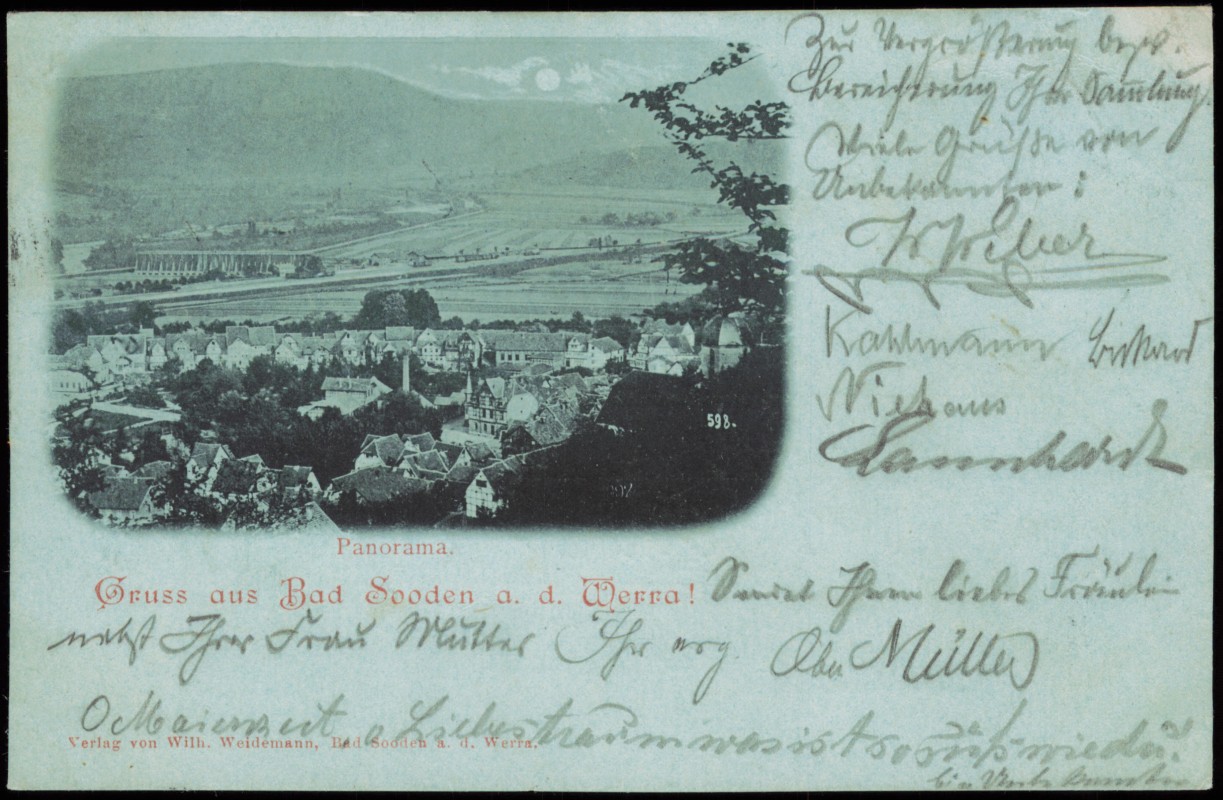 Zur Vergrößerung bezw.
Bereicherung Ihrer Sammlung.
Viele Grüße von
Unbekannten:
W Weber
Kahlmann
Niehaus
598.
Panorama.
Gruss aus Bad Sooden a. d. Werra!
Sendet Ihnen liebes Fräulein
nebst Ihrer Frau Mutter Ihr erg. Müller
O Maienzeit o Liebestraum was ist so süß wie du!
Verlag von Wilh. Weidemann, Bad Sooden a. d. Werra.